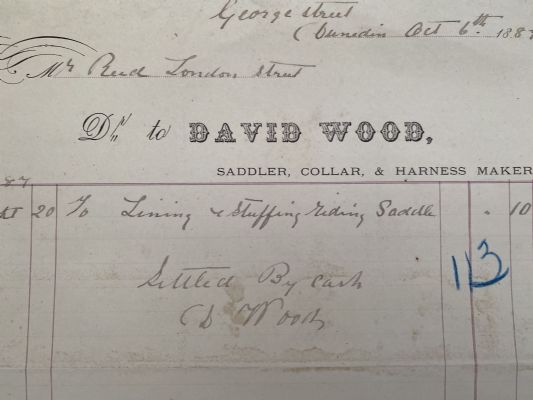 George Street
Dunedin Oct 6th 188
Mr Reid London Street
Dr to DAVID WOOD,
SADDLER, COLLAR, & HARNESS MAKER
87
20 To Lining & Stuffing riding Saddle " 10
113
Settled By Cash
D Wood